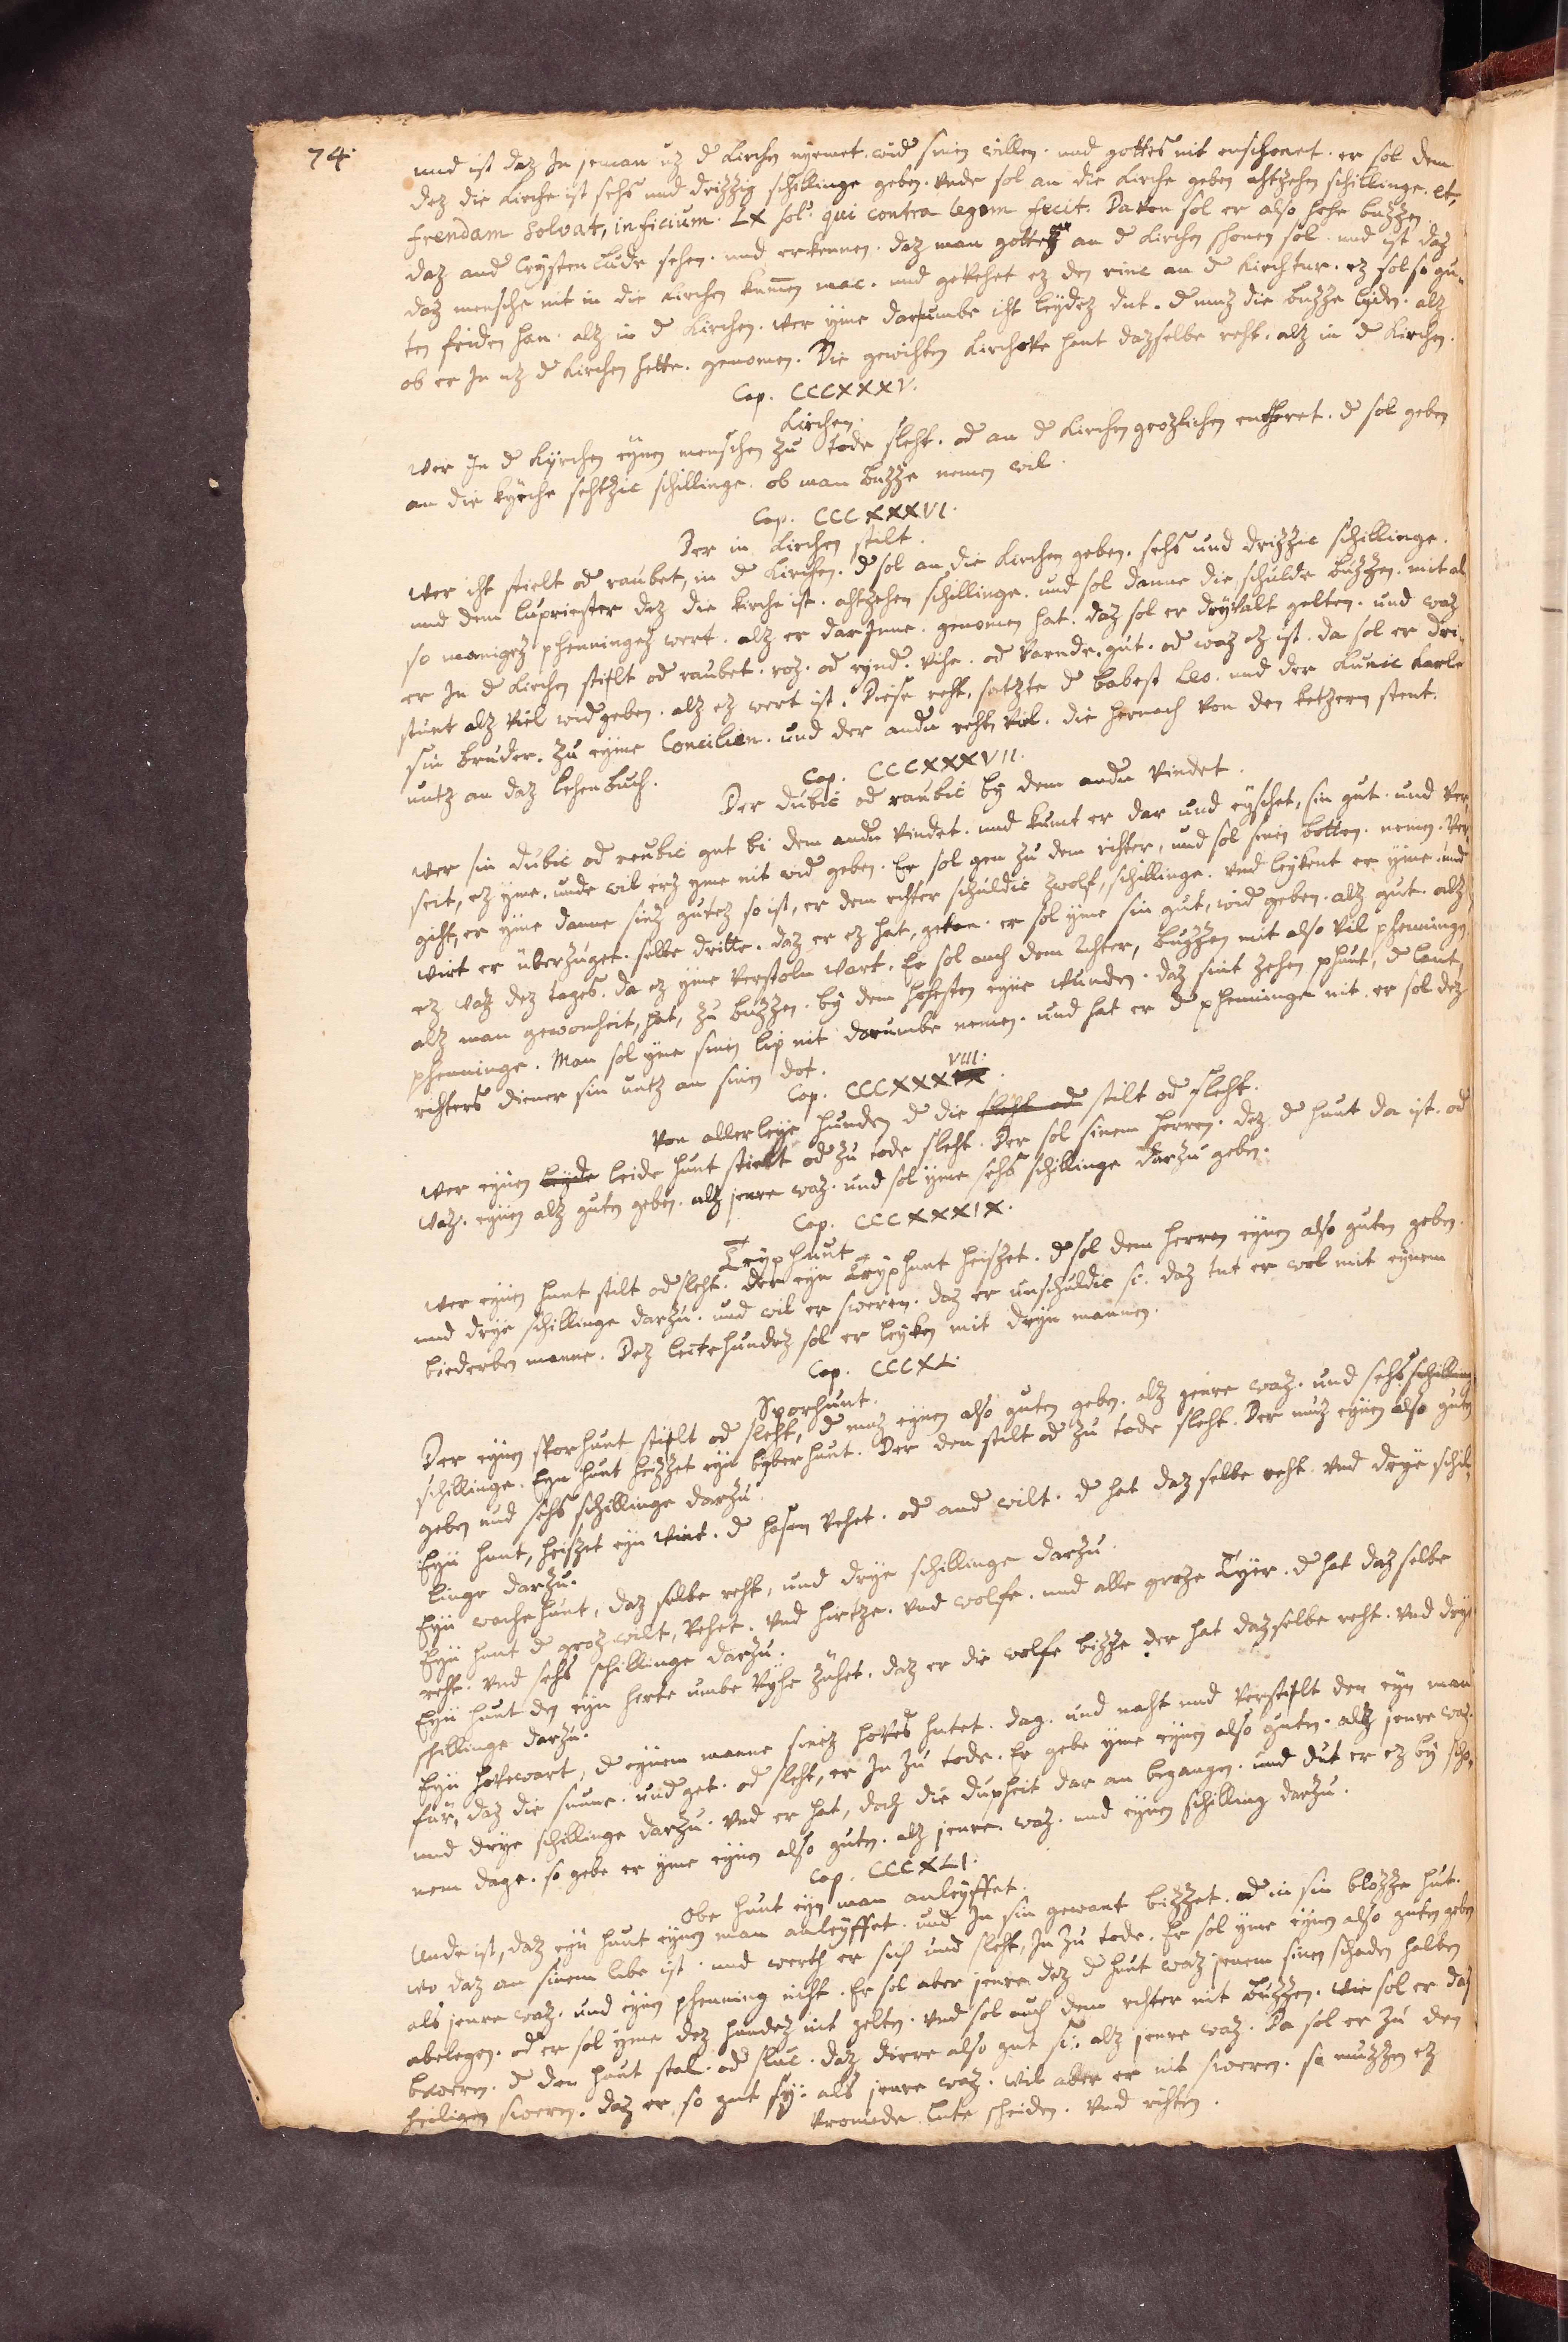 74.
und ist daz In jeman uz d Kirchen nyemet. wid sinen willen. und gottes nit enschonet. er sol dem
dez die Kirche ist sehs und drizzig schillinge geben. Unde sol an die Kirche geben ahtzehen schillinge. et,
frendam solvat, in ficium. LX sol: qui contra legem fecit. Davon sol er also hohe buzzen.
daz and Cristen lude sehen. und erkennen. daz man gottez an d Kirchen schonen sol. und ist daz
daz mensche nit in die Kirchen kumen mac. und gevehet ez den rinc an d Kirchtur. ez sol so gu-
ten friden han. alz in d Kirchen. wer yme darumbe iht leydez dut. d muz die buzze lyden. alz
ob er In uz d Kirchen hette. genomen. Die gewihten Kirchove hant dazselbe reht. alz in d Kirchen.
Cap. CCCXXXV.
Kirchen.
Wer In d Kyrchen eynen menschen zu tode sleht. od an d Kirchen grozlichen entheret. d sol geben
an die kyrche sehtzic schillinge. ob man buzze nemen wil.
Cap. CCCXXXVI.
Der in Kirchen stilt.
Wer iht stielt od raubet, in d Kirchen. d sol an die Kirchen geben. sehs und drizzic schillinge.
und dem lupriester dez die kirche ist. ahtzehen schillinge. und sol danne die schulde buzzen. mit al
so manigez phenningez wert. alz er darInne. genomen hat. daz sol er dryvalt gelten. und waz
er In d Kirchen stielt od raubet. roz. od rynd. vihe. od varnde. gut. od waz ez ist. da sol er dri-
stunt alz viel wid geben. alz ez wert ist. Diese reht, satzte d babest Leo. und der Kunic Karle
sin bruder. zu eyme Concilien. und der andn rehte vil. die hernach von den ketzern stent.
untz an daz lehenbuch.
Cap. CCCXXXVII.
Der dubic od raubic by dem andn vindet.
Wer sin dubic od reubic gut bi dem andn vindet. und kumt er dar und eyschet, sin gut. und ver-
seit, ez yme. unde wil erz yme nit wid geben. Er sol gen zu dem richter, und sol sinen botten. nemen. Ver-
giht, er yme danne sinez gutez so ist, er dem rihter schuldic zwolf, schillinge. und leykent er yme. und
wirt er überzuget. selbe dritte. daz er ez hat, getan. er sol yme sin gut, wid geben. alz gut. alz
ez waz dez tages. da ez yme verstoln wart. Er sol auch dem rihter, buzzen mit also vil phenningn
alz man gewonheit, hat, zu buzzen. by dem hohesten eyne wunden. daz sint zehen phunt, d lant,
phenninge. Man sol yme sinen lip nit darumbe nemen. und hat er d phenninge nit. er sol dez
richters diener sin untz an sinen dot.
Cap. CCCXXXVIII.
Von allerleye hunden d die stilt od sleht.
Wer eynen leide hunt stielt od zu tode sleht. Der sol sinem herren. dez d hunt da ist. od
waz. eynen alz guten geben. alz jenre waz. und sol yme sehs schillinge darzu geben.
Cap. CCCXXXIX.
Tryphunt.
Wer eynen hunt stilt od sleht. der eyn Tryphunt heiszet. d sol dem herren eynen also guten geben.
und drye schillinge darzu. und wil er sweren. daz er unschuldic si. daz tut er wol mit eynem
biederben manne. Dez leitehundez sol er leyken mit dryn mannen.
Cap. CCCXL.
Sporhunt.
Der eynen sporhunt stielt od sleht, d muz eynen also guten geben. alz yenre waz. und sehs schilling
schillinge. Eyn hunt heizzet eyn byberhunt. Der den stilt od zu tode sleht. Der muz eynen also guten
geben und sehs schillinge darzu.
Eyn hunt, heiszet eyn wint. d hasen vehet. od and wilt. d hat daz selbe reht. und drye schil-
linge darzu.
Eyn wachehunt, daz selbe reht, und drye schillinge darzu.
Eyn hunt d groz wilt, vehet. und hirtze. und wolfe. und alle groze Tyer. d hat daz selbe
reht. und sehs schillinge darzu.
Eyn hunt den eyn herte umbe vyhe zuhet. daz er die wolfe bizze der hat dazselbe reht. und drye
schillinge darzu.
Eyn hovewart, d eynem manne sinez hoves hutet. dag. und naht und verstilt den eyn man
für, daz die sunne. und get. od sleht, er In zu tode. Er gebe yme eynen also guten. alz jenre waz.
und drye schillinge darzu. und er hat, doch die dupheit dar an begangen. und dut er ez by scho-
nem dage. so gebe er yme eynen also guten. alz jenre. waz. und eynen schilling darzu.
Cap. CCCXLI.
Obe hunt eyn man anleyffet.
Unde ist, daz eyn hunt eynen man anleyffet. und In sin gewant bizzet. od in sin blozze hut.
wo daz an sinem libe ist. und werth er sich und sleht, In zu tode. Er sol yme eynen also guten geben
als jenre waz. und eynen phenning niht. Er sol aber jenre dez d hunt waz jenem sinen schaden halben
abelegen. od er sol yme dez hundez nit gelten. und sol auch dem rihter nit buzzen. Wie sol er daz
beweren. d den hunt stal. od sluc. daz dirre also gut si. alz jenre waz. Da sol er zu den
heiligen sweren. daz er so gut sy. als jenre waz. wil aber er nit sweren. so muzzen ez
vromede lute scheiden. und rihten.